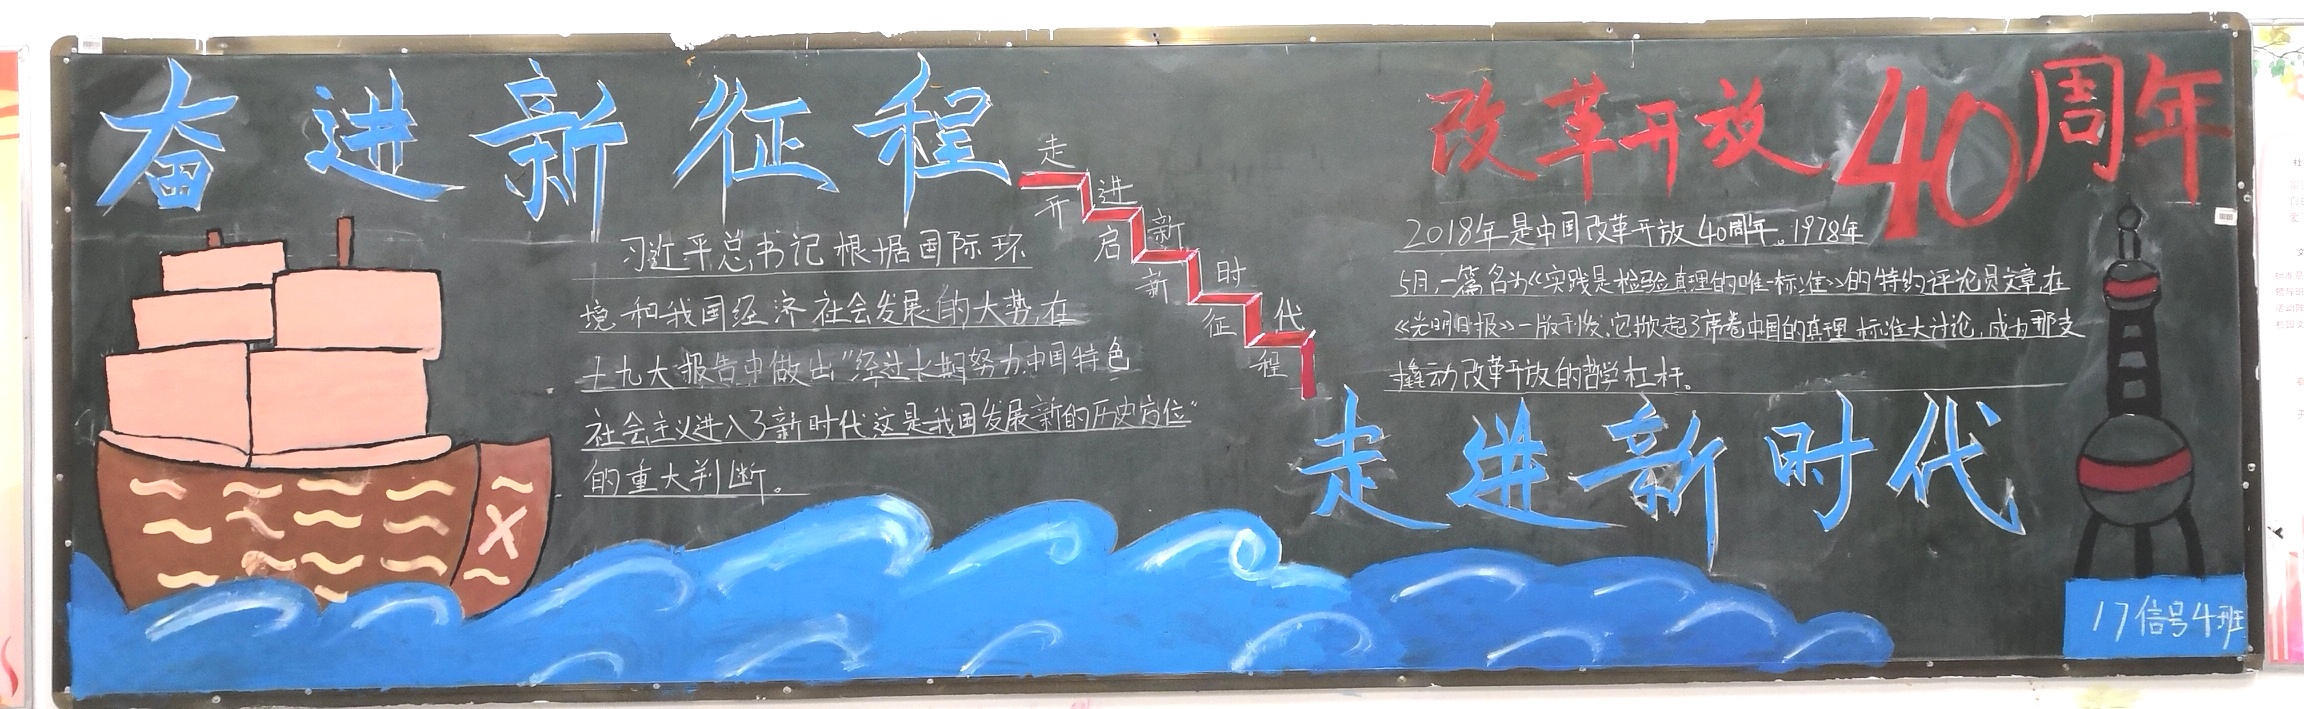 奋进新征程
习近平总书记根据国际环
境和我国经济社会发展的大势,在
十九大报告中做出“经过长期努力,中国特色
社会主义进入了新时代,这是我国发展新的历史方位”
的重大判断。
走进新时代
开启新征程
改革开放40周年
2018年是中国改革开放40周年。1978年
5月,一篇名为《实践是检验真理的唯一标准》的特约评论员文章,在
《光明日报》一版刊发,它掀起了席卷中国的真理标准大讨论,成为那支
撬动改革开放的哲学杠杆。
走进新时代
17信号4班